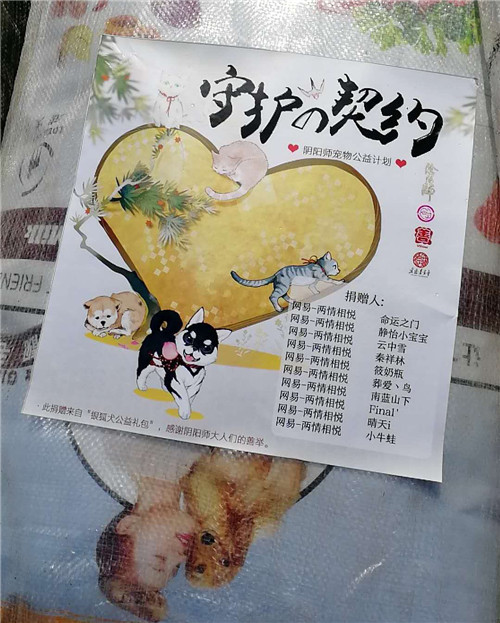 守护の契约
阴阳师宠物公益计划
捐赠人:
网易-两情相悦 命运之门
网易-两情相悦 静怡小宝宝
网易-两情相悦 云中雪
网易-两情相悦 秦祥林
网易-两情相悦 筱奶瓶
网易-两情相悦 葬爱丶鸟
网易-两情相悦 南蓝山下
网易-两情相悦 Final'
网易-两情相悦 晴天i
网易-两情相悦 小牛蛙
此捐赠来自"银狐犬公益礼包",感谢阴阳师大人们的善举。
FRIEND